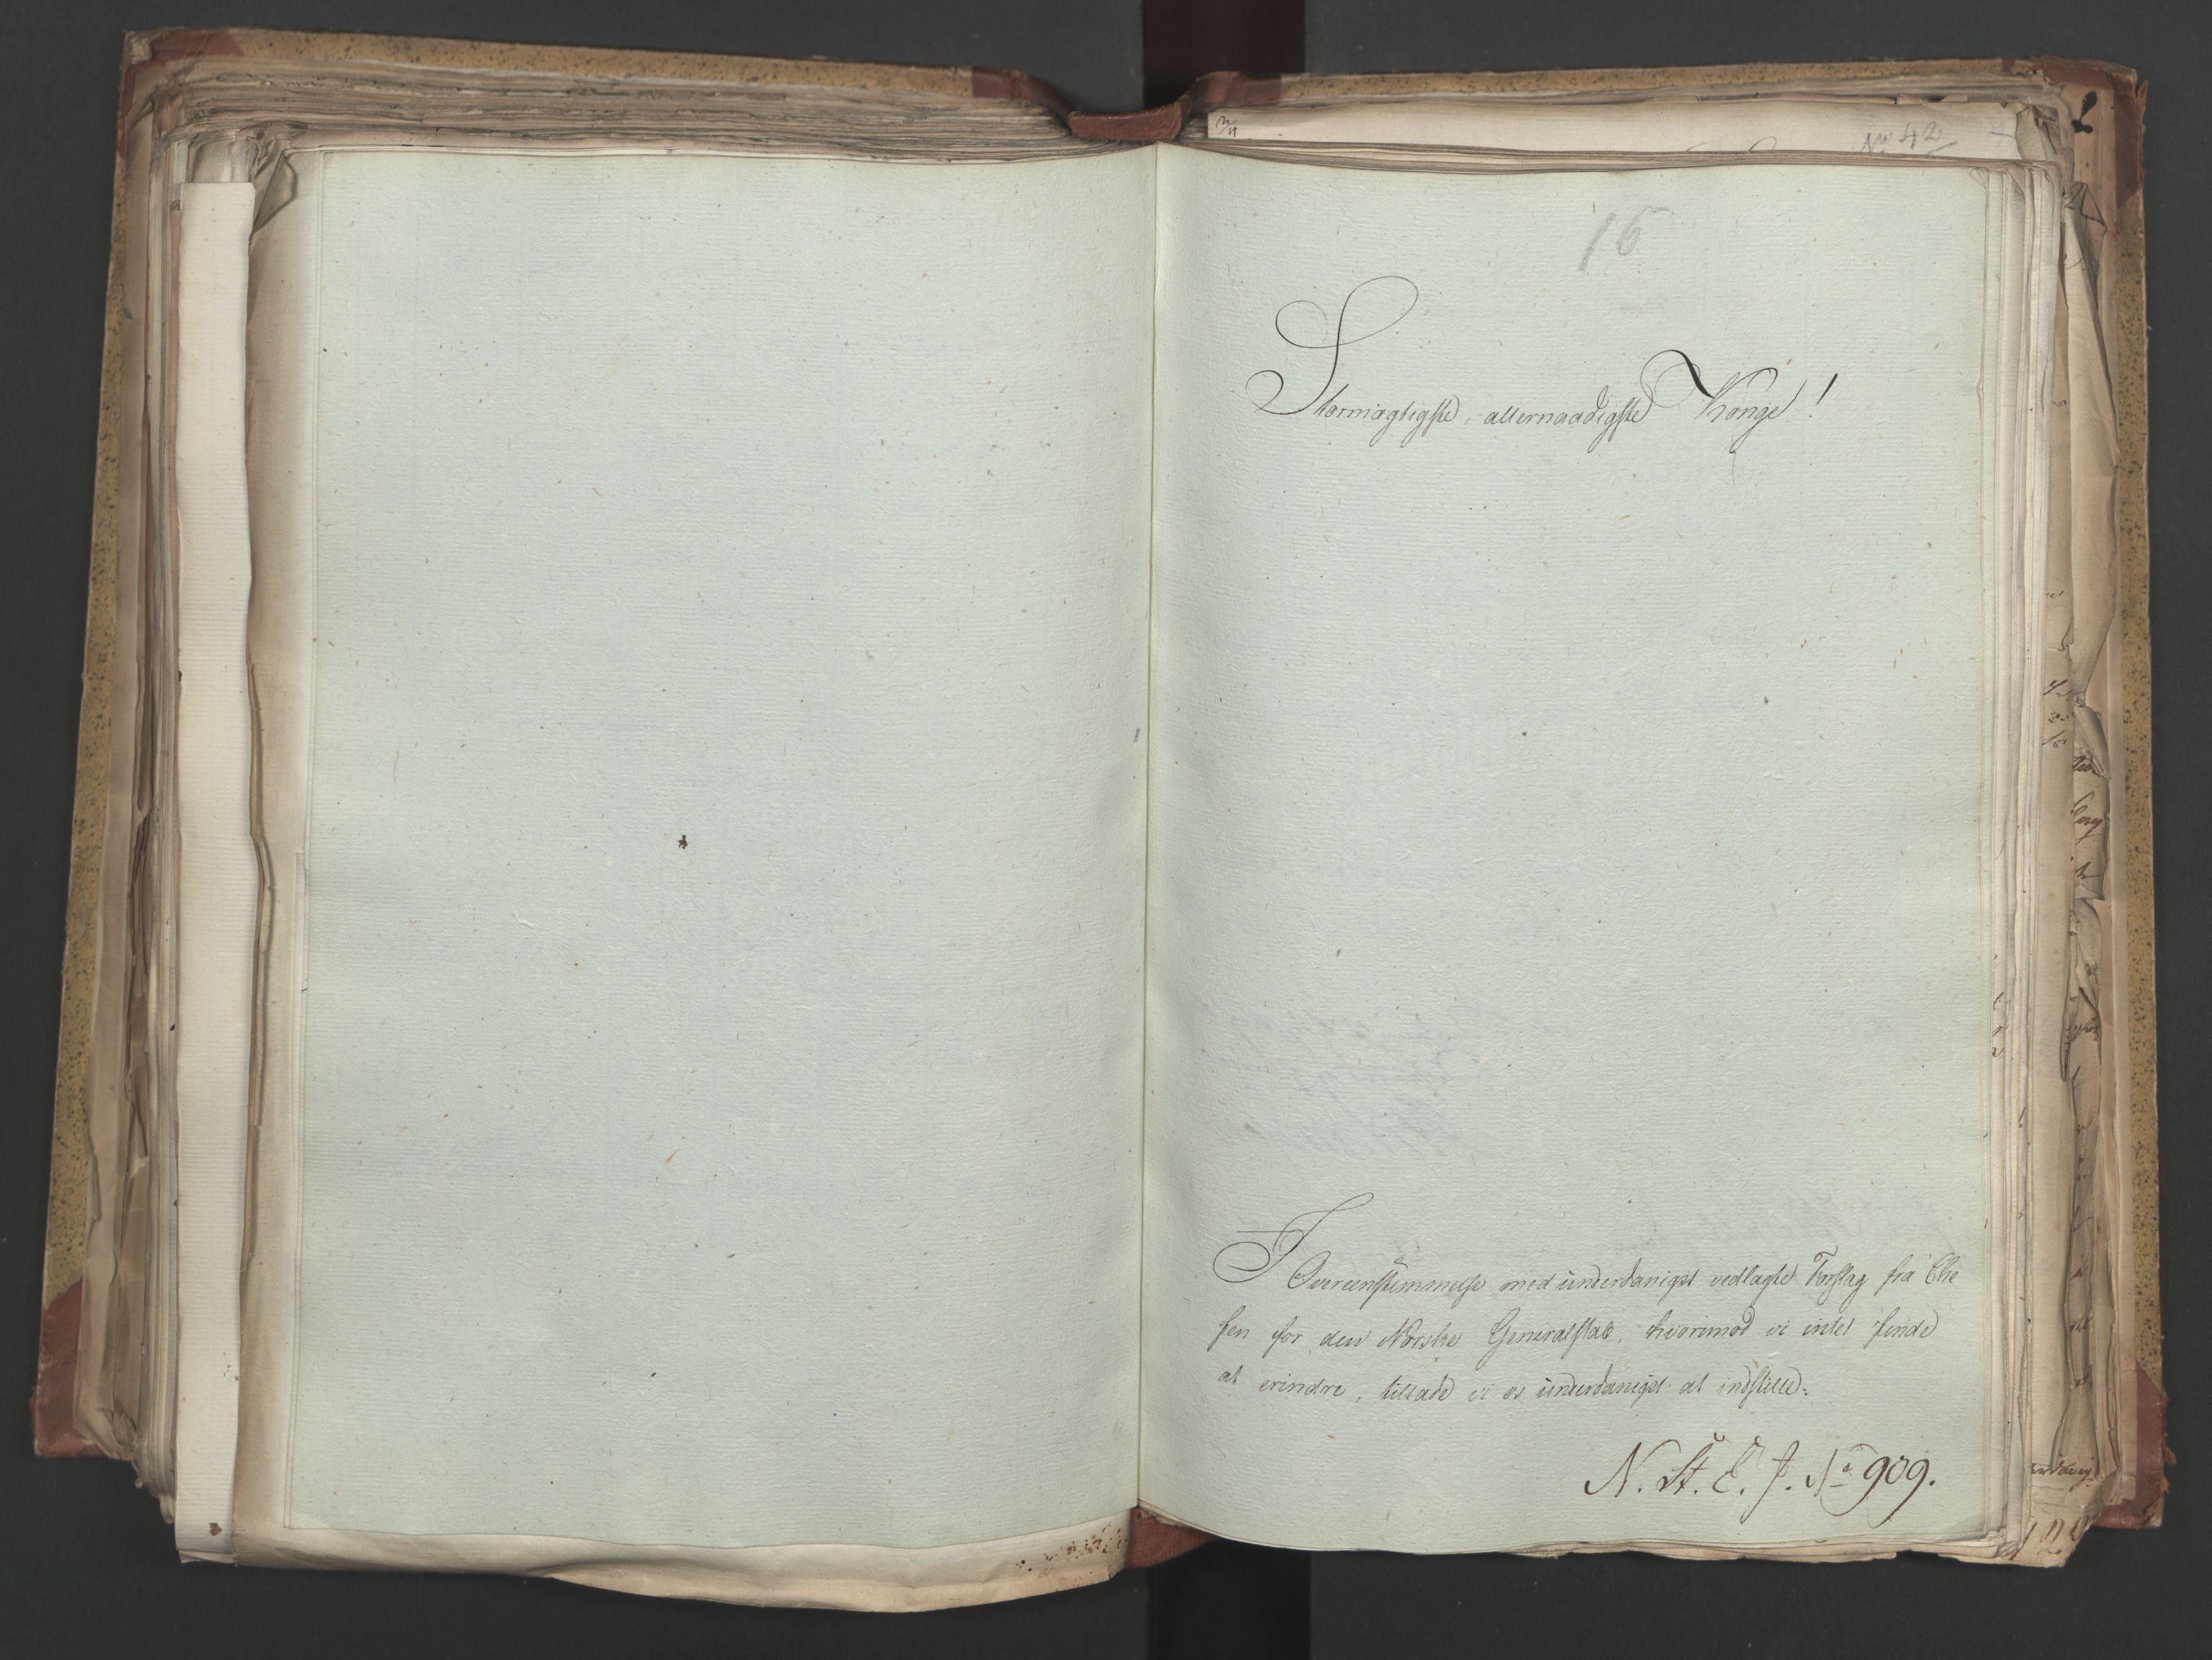 No 42
16
Stormægtigste, allernaadigste Konge!
I Overeensstemmelse med underdanigst vedlagte Forslag fra Che
fen for den Norske Generalstab, hvorimod vi intet finde
at erindre, tillade vi os underdanigst at indstille:
N. St. E. J. No 909.